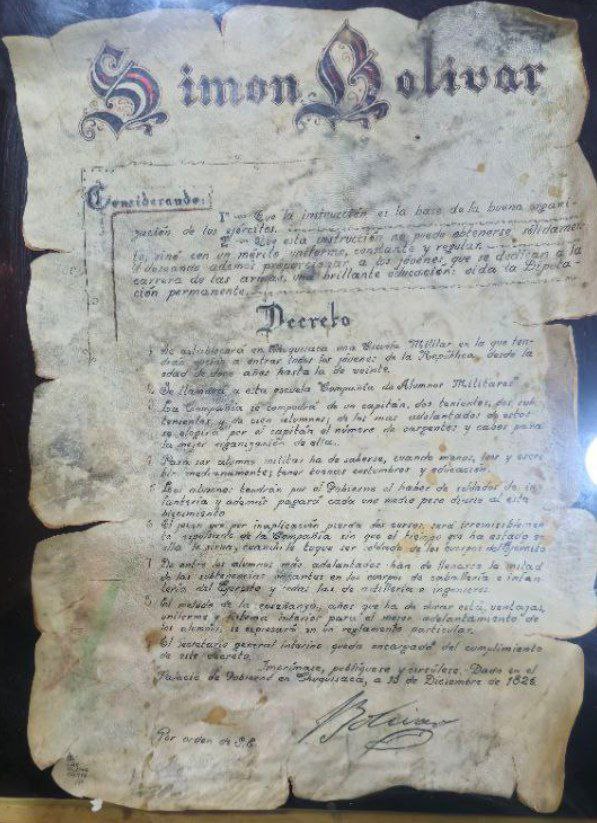 Simon Bolivar
Considerando:
1º — Que la instrucción es la base de la buena organi-
zación de los ejércitos.
2º — Que esta instrucción no puede obtenerse sólidamen-
te, sino con un mérito uniforme, constante y regular.
Y deseando además proporcionar a los jóvenes que se dedican a la
carrera de las armas, una brillante educación: oida la Diputa-
ción permanente.
Decreto
1. Se establecerá en Chuquisaca una Escuela Militar en la que ten-
drán opción a entrar todos los jóvenes de la República, desde la
edad de doce años hasta la de veinte.
2. Se llamará a esta escuela "Compañía de Alumnos Militares"
3. La Compañía se compondrá de un capitán, dos tenientes, dos sub-
tenientes y de cien alumnos; de los más adelantados de estos
se elegirá por el capitán el número de sargentos y cabos para
la mejor organización de ella.
4. Para ser alumno militar ha de saberse, cuando menos, leer y escri-
bir medianamente; tener buenas costumbres y educación.
5. Los alumnos tendrán por el Gobierno el haber de soldados de in-
fantería y además pagará cada uno medio peso diario al esta
blecimiento
6. El joven que por inaplicación pierda dos cursos, será irremisiblemen
te expulsado de la Compañía sin que el tiempo que ha estado en
ella le sirva, cuando le toque ser soldado de los cuerpos del Ejército
7. De entre los alumnos más adelantados han de llenarse la mitad
de las subtenencias vacantes en los cuerpos de caballería e infan-
tería del Ejército y todas las de artillería e ingenieros.
8. El método de la enseñanza, años que ha de durar esta, ventajas,
uniforme y sistema interior para el mejor adelantamiento de
los alumnos, se expresará en un reglamento particular.
9. El secretario general interino queda encargado del cumplimiento
de este decreto.
Imprímase, publíquese y circúlese. Dado en el
Palacio de Gobierno en Chuquisaca, a 13 de Diciembre de 1825
Bolivar
Por orden de S.E.